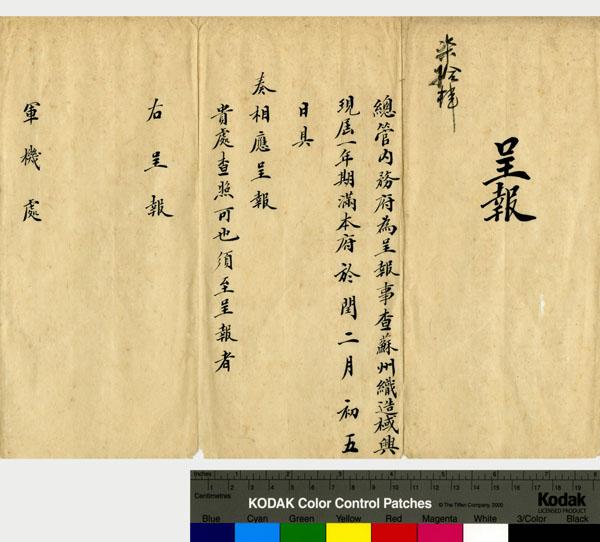 呈報
柒拾肆
總管内務府為呈報事查蘇州織造棫興
現屆一年期滿本府於閏二月初五
日具
奏相應呈報
貴處查照可也須至呈報者
右呈報
軍機處
Inches 1 2 3 4 5 6 7 8
Centimetres 1 2 3 4 5 6 7 8 9 10 11 12 13 14 15 16 17 18 19
KODAK Color Control Patches © The Tiffen Company, 2000 Kodak
LICENSED PRODUCT
Blue Cyan Green Yellow Red Magenta White 3/Color Black